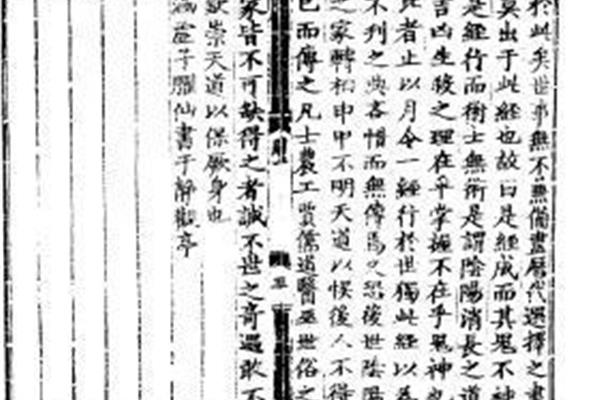 於此矣世事無不兼備盡歷代選擇之書
莫出于此經也故曰是經成而其鬼不神
是經行而術士無術是謂陰陽消長之道
吉凶生殺之理在乎掌握不在乎鬼神也
此者止以月令一經行於世獨此經以為
不刊之典吝惜而無傳焉又恐後世陰陽
之家轉相印甲不明天道以悮後人不得
已而傳之凡士農工賈儒道醫巫世俗之
家皆不可缺得之者誠不世之奇遇敢不
欽崇天道以保厥身也
涵虛子臞仙書于靜觀亭